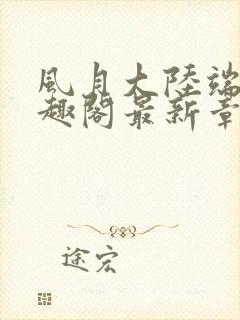 風月大陸端
趣閣最新章
途宏